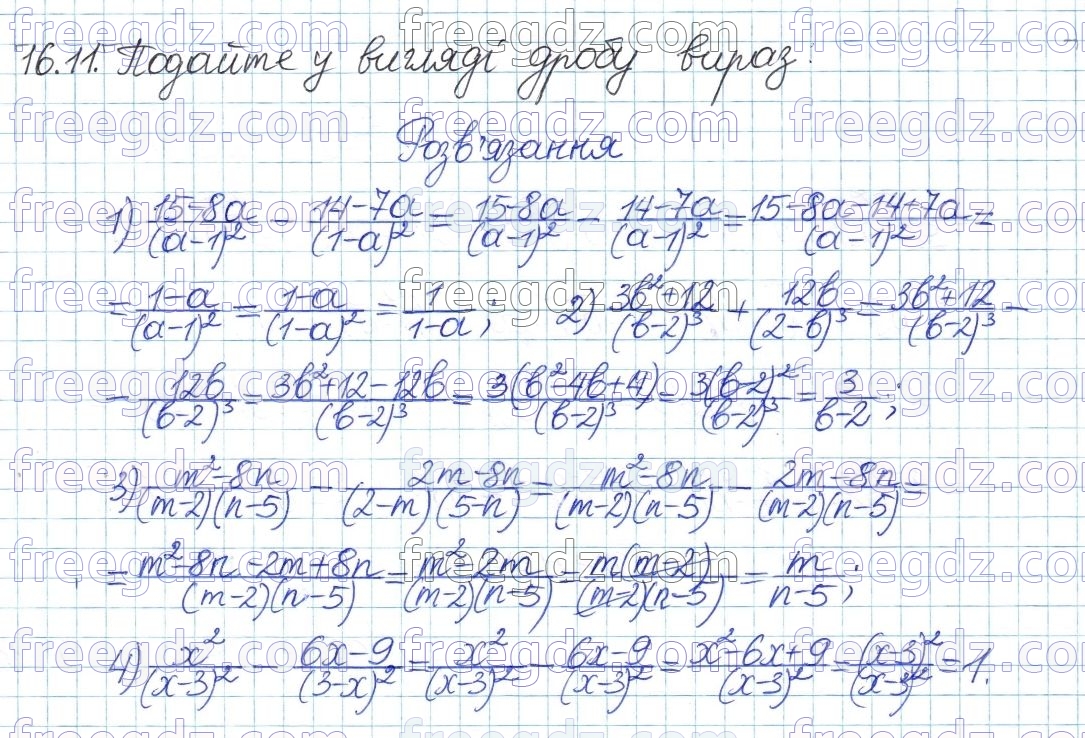 16.11. Подайте у вигляді дробу вираз:
Розв'язання
1) (15-8a)/(a-1)² - (14-7a)/(1-a)² = (15-8a)/(a-1)² - (14-7a)/(a-1)² = (15-8a-14+7a)/(a-1)² =
= (1-a)/(a-1)² = (1-a)/(1-a)² = 1/(1-a); 2) (3b²+12)/(b-2)³ + 12b/(2-b)³ = (3b²+12)/(b-2)³ -
- 12b/(b-2)³ = (3b²+12-12b)/(b-2)³ = 3(b²-4b+4)/(b-2)³ = 3(b-2)²/(b-2)³ = 3/(b-2);
3) (m²-8n)/(m-2)(n-5) - (2m-8n)/(2-m)(5-n) = (m²-8n)/(m-2)(n-5) - (2m-8n)/(m-2)(n-5) =
= (m²-8n-2m+8n)/(m-2)(n-5) = (m²-2m)/(m-2)(n-5) = m(m-2)/(m-2)(n-5) = m/(n-5);
4) x²/(x-3)² - (6x-9)/(3-x)² = x²/(x-3)² - (6x-9)/(x-3)² = (x²-6x+9)/(x-3)² = (x-3)²/(x-3)² = 1.
freegdz.com